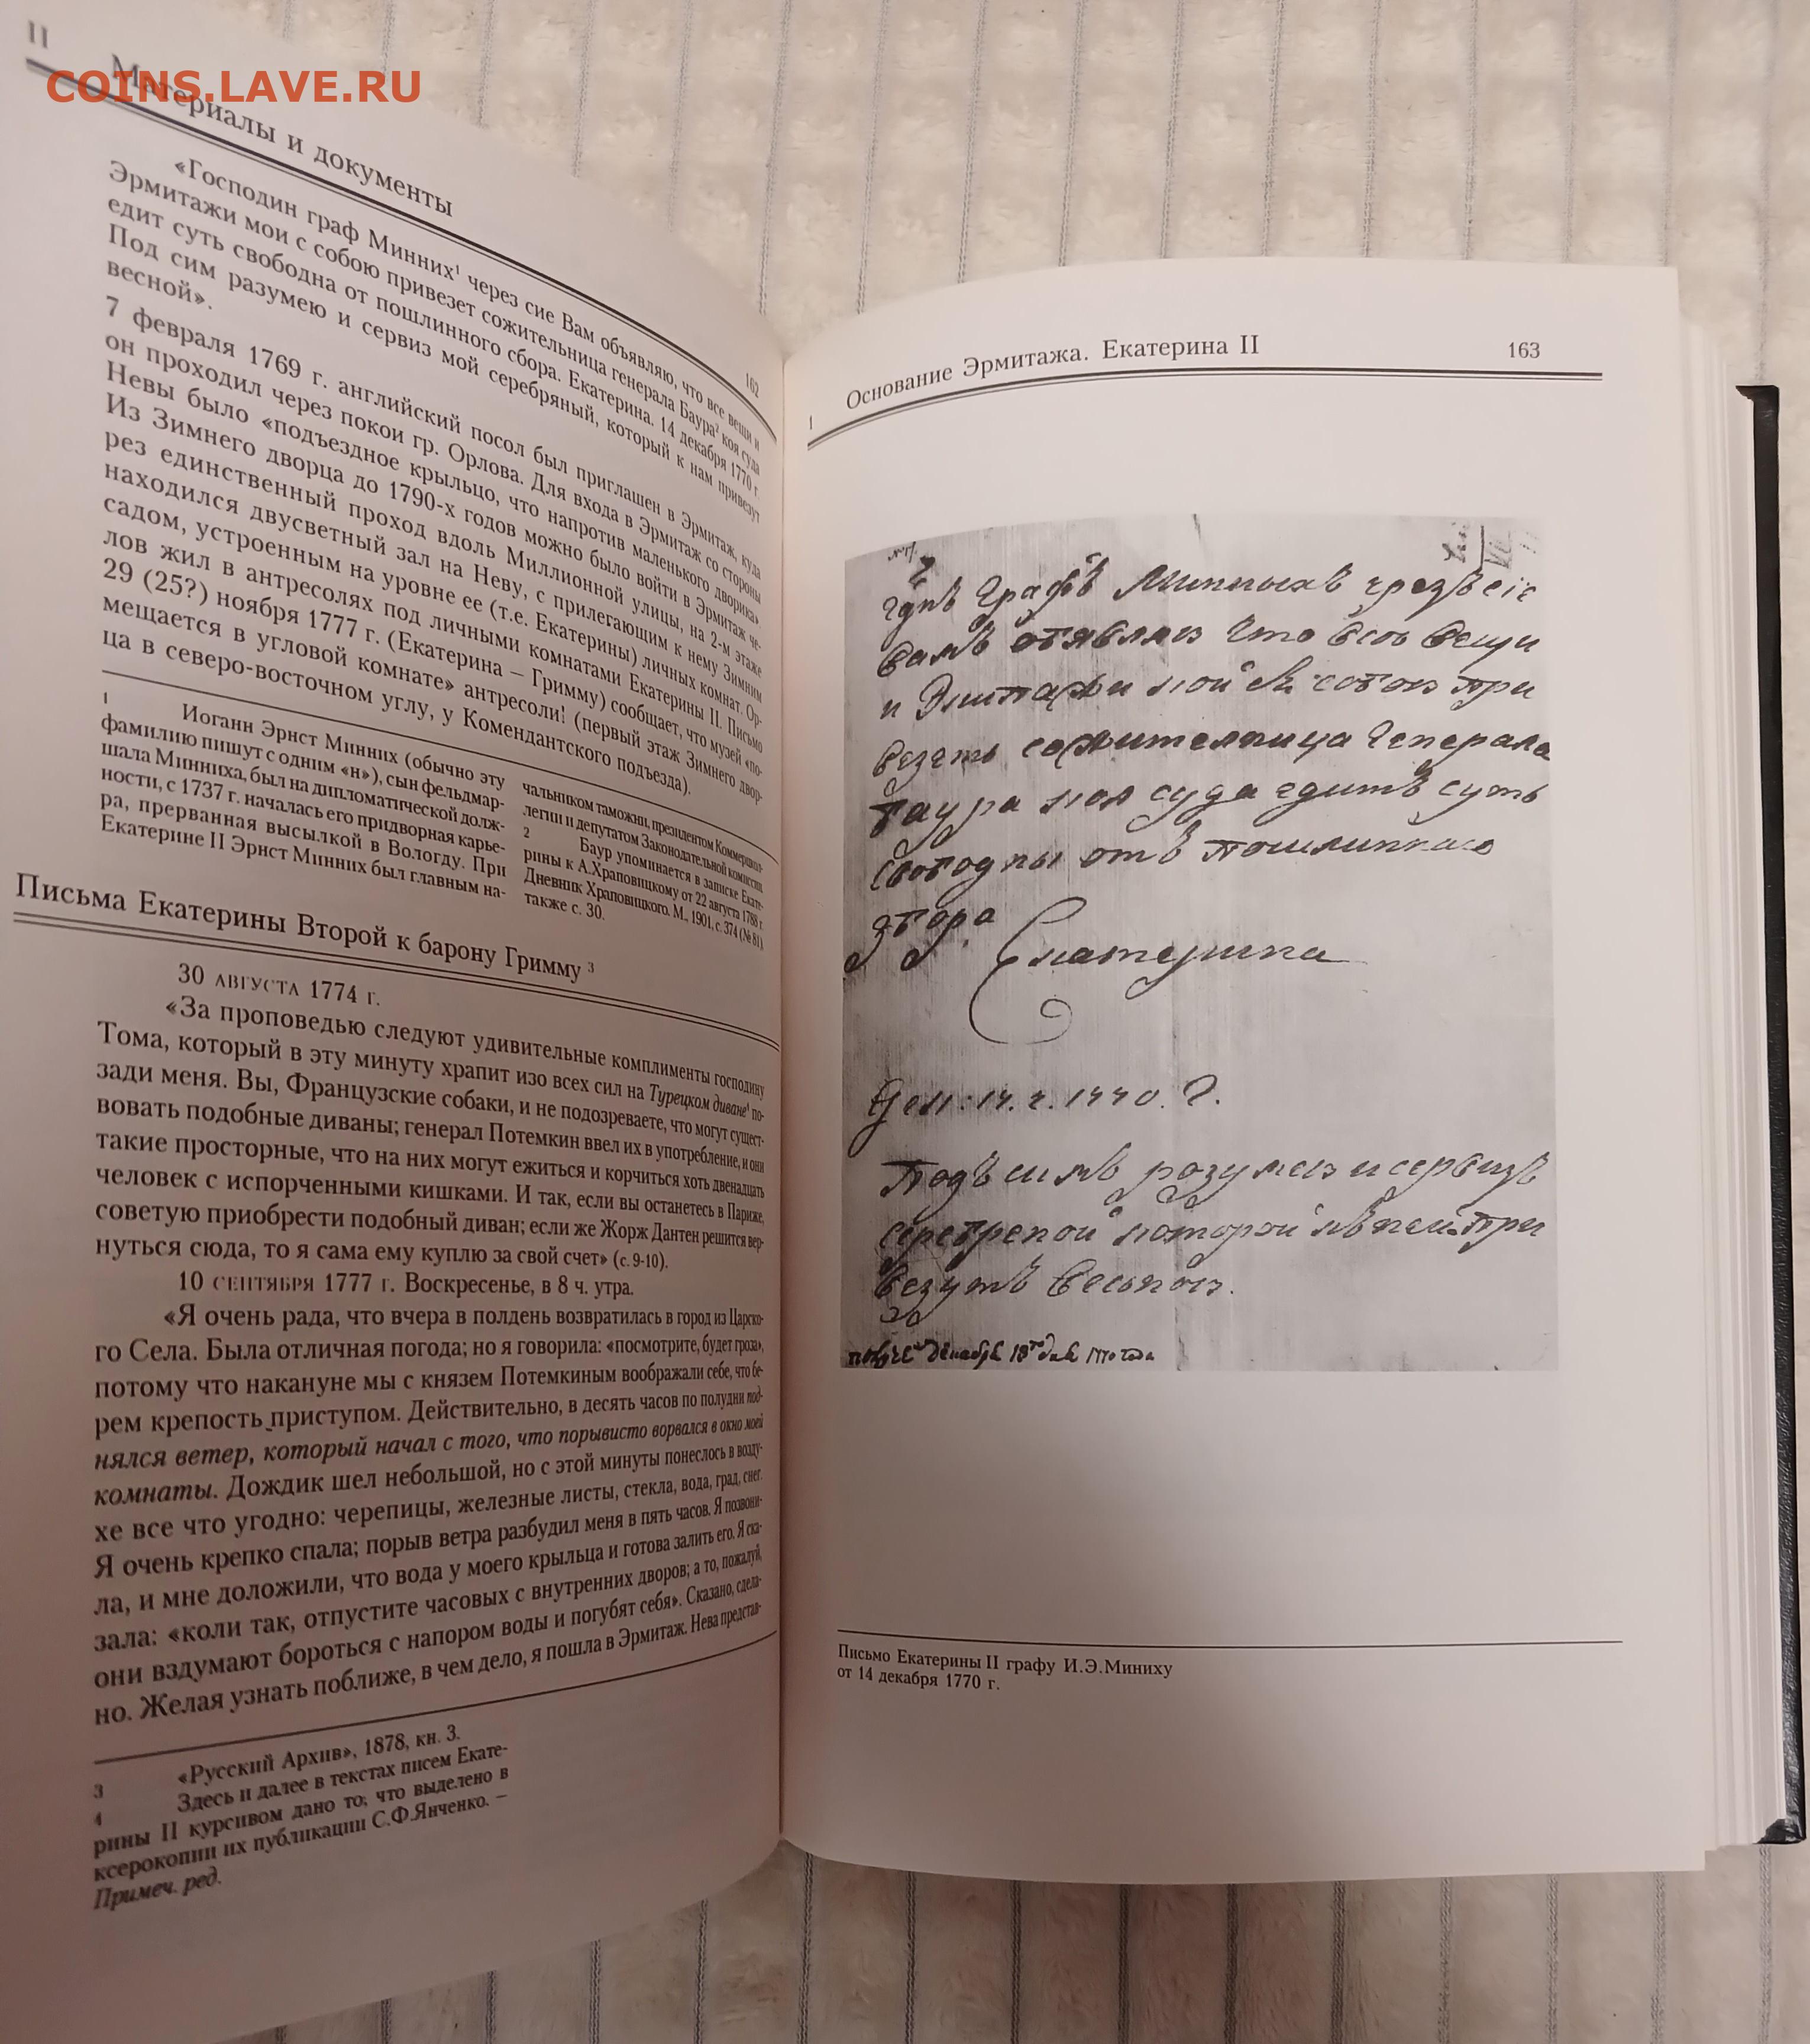 COINS.LAVE.RU
II
Материалы и документы
162
«Господин граф Минних¹ через сие Вам объявляю, что все вещи и
Эрмитажи мои с собою привезет сожительница генерала Баура² коя суда
едит суть свободна от пошлинного сбора. Екатерина. 14 декабря 1770 г.
Под сим разумею и сервиз мой серебряный, который к нам привезут
весной».
7 февраля 1769 г. английский посол был приглашен в Эрмитаж, куда
он проходил через покои гр. Орлова. Для входа в Эрмитаж со стороны
Невы было «подъездное крыльцо, что напротив маленького дворика»
Из Зимнего дворца до 1790-х годов можно было войти в Эрмитаж че-
рез единственный проход вдоль Миллионной улицы, на 2-м этаже
находился двусветный зал на Неву, с прилегающим к нему Зимним
садом, устроенным на уровне ее (т.е. Екатерины) личных комнат. Ор-
лов жил в антресолях под личными комнатами Екатерины II. Письмо
29 (25?) ноября 1777 г. (Екатерина – Гримму) сообщает, что музей «по-
мещается в угловой комнате» антресоли! (первый этаж Зимнего двор-
ца в северо-восточном углу, у Комендантского подъезда).
1
Иоганн Эрнст Минних (обычно эту
фамилию пишут с одним «н»), сын фельдмар-
шала Минниха, был на дипломатической долж-
ности, с 1737 г. началась его придворная карье-
ра, прерванная высылкой в Вологду. При
Екатерине II Эрнст Минних был главным на-
чальником таможни, президентом Коммерцкол-
легии и депутатом Законодательной комиссии.
2
Баур упоминается в записке Екате-
рины к А.Храповицкому от 22 августа 1788 г.
Дневник Храповицкого. М., 1901, с. 374 (№ 81)
также с. 30.
Письма Екатерины Второй к барону Гримму ³
30 АВГУСТА 1774 г.
«За проповедью следуют удивительные комплименты господину
Тома, который в эту минуту храпит изо всех сил на Турецком диване⁴ по-
зади меня. Вы, Французские собаки, и не подозреваете, что могут сущест-
вовать подобные диваны; генерал Потемкин ввел их в употребление, и они
такие просторные, что на них могут ежиться и корчиться хоть двенадцать
человек с испорченными кишками. И так, если вы останетесь в Париже,
советую приобрести подобный диван; если же Жорж Дантен решится вер-
нуться сюда, то я сама ему куплю за свой счет» (с. 9-10).
10 СЕНТЯБРЯ 1777 г. Воскресенье, в 8 ч. утра.
«Я очень рада, что вчера в полдень возвратилась в город из Царско-
го Села. Была отличная погода; но я говорила: «посмотрите, будет гроза»,
потому что накануне мы с князем Потемкиным воображали себе, что бе-
рем крепость приступом. Действительно, в десять часов по полудни под-
нялся ветер, который начал с того, что порывисто ворвался в окно моей
комнаты. Дождик шел небольшой, но с этой минуты понеслось в возду-
хе все что угодно: черепицы, железные листы, стекла, вода, град, снег.
Я очень крепко спала; порыв ветра разбудил меня в пять часов. Я позвони-
ла, и мне доложили, что вода у моего крыльца и готова залить его. Я ска-
зала: «коли так, отпустите часовых с внутренних дворов; а то, пожалуй,
они вздумают бороться с напором воды и погубят себя». Сказано, сдела-
но. Желая узнать поближе, в чем дело, я пошла в Эрмитаж. Нева представ-
3
«Русский Архив», 1878, кн. 3.
4
Здесь и далее в текстах писем Екате-
рины II курсивом дано то, что выделено в
ксерокопии их публикации С.Ф.Янченко. –
Примеч. ред.
1
Основание Эрмитажа. Екатерина II
163
гднъ Графъ Миннихъ чрезъ сіе
вамъ обявляю что всѣ вещи
и Эмитажи мои съ собою при
везетъ сожителница Генерала
баура коя суда едитъ суть
свободны отъ пошлиннаго
збора
Екатерина
Дек: 14. ч. 1770. г.
Подъ симъ разумею и сервизъ
серебреной которой къ нем при
везутъ весьною.
декабря 18го дня 1770 года
Письмо Екатерины II графу И.Э.Миниху
от 14 декабря 1770 г.